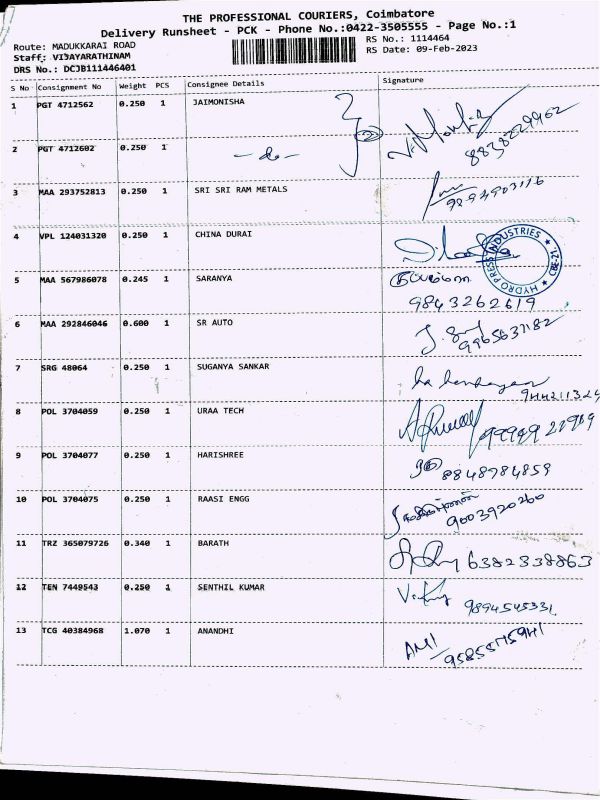 THE PROFESSIONAL COURIERS, Coimbatore
Delivery Runsheet - PCK - Phone No.:0422-3505555 - Page No.:1
Route: MADUKKARAI ROAD RS No.: 1114464
Staff: VIJAYARATHINAM RS Date: 09-Feb-2023
DRS No.: DCJB111446401
S No Consignment No Weight PCS Consignee Details Signature
1 PGT 4712562 0.250 1 JAIMONISHA
8838229962
2 PGT 4712602 0.250 1 -do-
3 MAA 293752813 0.250 1 SRI SRI RAM METALS
4 VPL 124031320 0.250 1 CHINA DURAI
HYDRO PRESS INDUSTRIES CBE-21.
5 MAA 567986078 0.245 1 SARANYA
9843262619
6 MAA 292846046 0.600 1 SR AUTO
9965631182
7 SRG 48064 0.250 1 SUGANYA SANKAR
8 POL 3704059 0.250 1 URAA TECH
9 POL 3704077 0.250 1 HARISHREE
8848984859
10 POL 3704075 0.250 1 RAASI ENGG
9003920260
11 TRZ 365079726 0.340 1 BARATH
6382338863
12 TEN 7449543 0.250 1 SENTHIL KUMAR
9894545331
13 TCG 40384968 1.070 1 ANANDHI